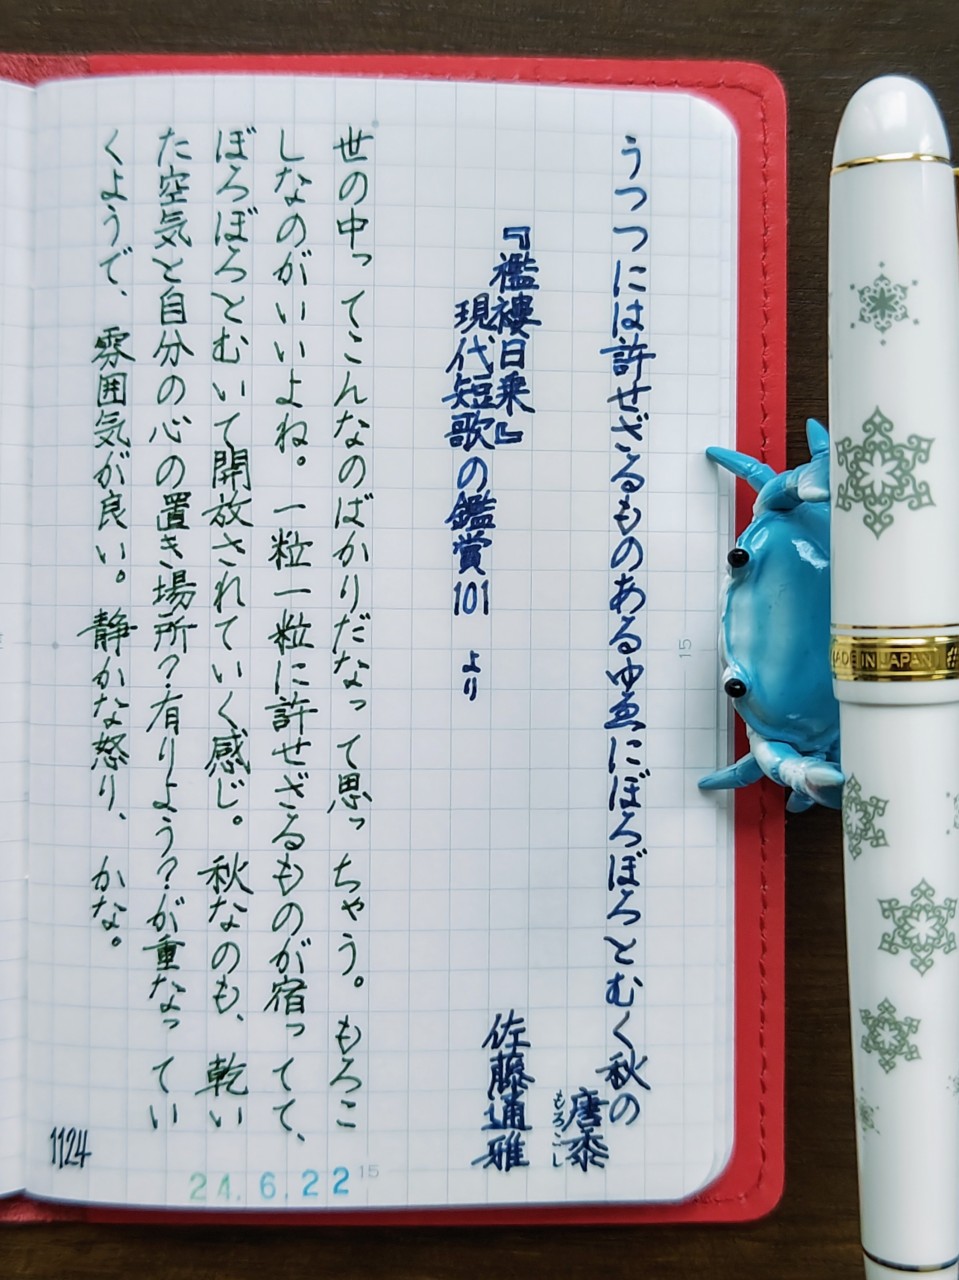 うつつには許せざるものあるゆゑにぼろぼろとむく秋の
唐黍
もろこし
『襤褸日乗』
現代短歌の鑑賞101 より
佐藤通雅
世の中ってこんなのばかりだなって思っちゃう。もろこ
しなのがいいよね。一粒一粒に許せざるものが宿ってて、
ぼろぼろとむいて開放されていく感じ。秋なのも、乾い
た空気と自分の心の置き場所?有りよう?が重なってい
くようで、雰囲気が良い。静かな怒り、かな。
1124
24.6.22
15
15
MADE IN JAPAN